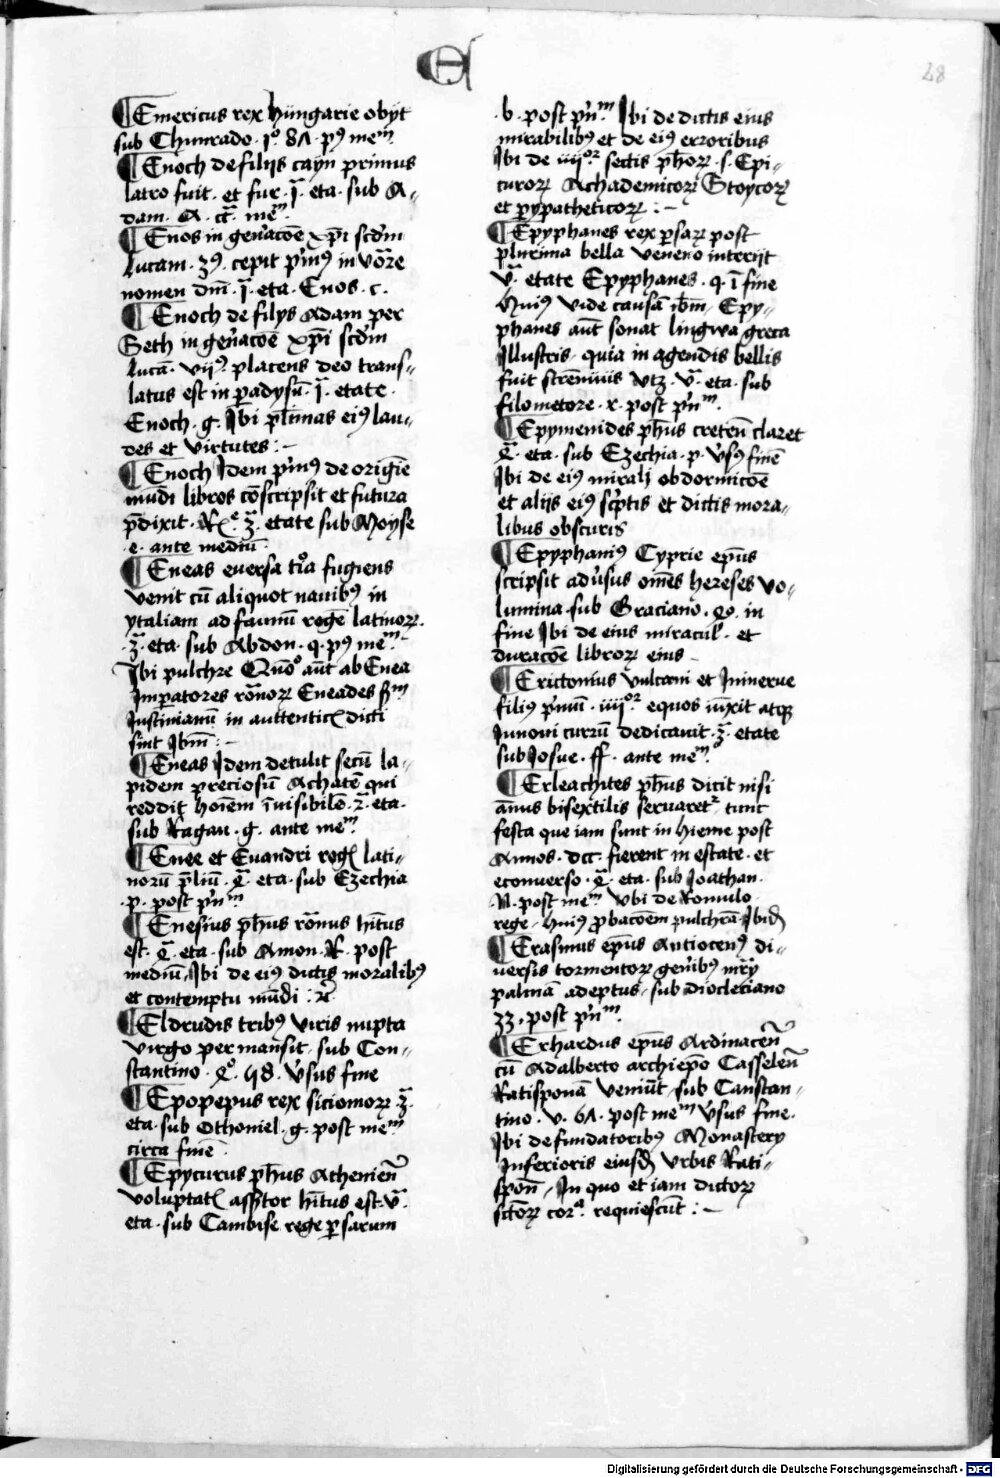 E
28
¶ Emericus rex Hungarie obijt
sub Chunrado · i͛o · 8Λ · pꝰ meᵐ
¶ Enoch de filijs cayn primus
latro fuit · et fur · ī · eta · sub A-
dam · A · ct̄ · meᵐ
¶ Enos in gen̄acōe xp̄i scd̄m
Lucam · ʒꝰ · cepit p̄mꝰ inuōre
nomen dnī · ī · eta · Enos · c ·
¶ Enoch de filys Adam per
Seth in gen̄acōe xp̄i scd̄m
Lucā · vijꝰ · placens deo trans-
latus est in ꝑadysū · ī · etate ·
Enoch · g · Ibi pl̄imas eiꝰ lau-
des et virtutes : –
¶ Enoch Idem p̄mꝰ de origīe
mūdi libros cōscripsit et futura
p̄dixit · etate sub Moyse
· e · ante mediū ·
¶ Eneas euersa tͦia fugiens
venit cū aliquot nauibꝰ in
ytaliam ad faunū regē latinoꝝ ·
· ʒ̄ · eta · sub Abdon · q · pꝰ meᵐ
Ibi pulchre Qūo aūt ab Enea
Imꝑatores rōnoꝝ Eneades
Iustinianū in auttentic dicti
sint Ibm̄ : –
¶ Eneas Idem detulit secū la-
pidem preciosū Achatē qui
reddit hoīem īuisibilē · 2̄ · eta ·
sub Ragau · g · ante meᵐ
¶ Enee et Euandri reg lati-
norū p̄liū · eta · sub Ezechia
· p · post p̄nᵐ
¶ Enesius ph̄us rōnus hītus
est · eta · sub Amon · R · post
mediū, Ibi de eiꝰ dictis moralibꝰ
et contemptu mūdi : ꝛc̄
¶ Eldrudis tribꝰ viris nupta
virgo permansit · sub Con-
stantino · v̄sus fine
¶ Epopepus rex siciomoꝝ · ʒ̄ ·
eta · sub Othoniel · g · post meᵐ
circa finē ·
¶ Epycurus ph̄us Atheniēn
voluptat assẜtor hītus est · v̄ ·
eta · sub Cambise rege ꝑsarum
· b · post p̄nᵐ Ibi de dictis eius
mirabilibꝰ et de eiꝰ erroribus
Ibi de iiijoꝛ sectis ph̄oꝝ · s · Epi-
curoꝝ Achademicoꝝ Stoycoꝝ
et ꝑypatheticoꝝ : –
¶ Epyphanes rex ꝑsaꝝ post
plurima bella veneno interijt
v̄ · etate Epyphanes · q · ī fine
Huiꝰ vide causā ibm̄, Epy-
phanes aūt sonat lingwa greca
Illustris · quia in agendis bellis
fuit strēnuus vtʒ · v̄ · eta · sub
filometore · x · post p̄nᵐ ·
¶ Epymenides ph̄us cretēn claret
eta · sub Ezechia · p · v̄sꝰ finē
Ibi de eiꝰ mirali obdormicōe
et alijs eiꝰ sc̄ptis et dictis mora-
libus obscuris
¶ Epyphaniꝰ Cyprie ep̄us
scripsit adu̓sus om̄es hereses vo-
lumina · sub Graciano · in
fine Ibi de eius miracul · et
duracōe libroꝝ eius –
¶ Erictonius vulcani et Minerue
filiꝰ p̄mū · iiijoꝛ equos iūxit atqꝫ
Iunoni currū dedicauit · ʒ̄ · etate
sub Josue · ff · ante meᵐ
¶ Erleachites ph̄us dicit nisi
annus bisextilis seruaretᷣ tunc
festa que iam sunt in hieme post
Annos · dcc · fierent in estate · et
econuerso · eta · sub Joathan ·
N · post meᵐ vbi de Romulo
rege · huiꝰ ꝓbacōem pulchrā · Ibid
¶ Erasmus ep̄us Antiocenꝰ di-
uersis tormentoꝝ gen̄ibꝰ mr̄ij
palmā adeptus, sub dioclecrano
ʒʒ · post p̄nᵐ
¶ Erhardus ep̄us Ardinacēn
cū Adalberto archiep̄o Casselēn
Ratisponā veniūt, sub Canstan-
tino · v · 6Λ · post meᵐ v̄sus fine ·
Ibi de fundatoribꝰ Monastery
Inferioris eiusd vrbis Rati-
spōn, In quo et iam dictoꝝ
sctōꝝ corᵃ requiescūt : –
Digitalisierung gefördert durch die Deutsche Forschungsgemeinschaft - DFG